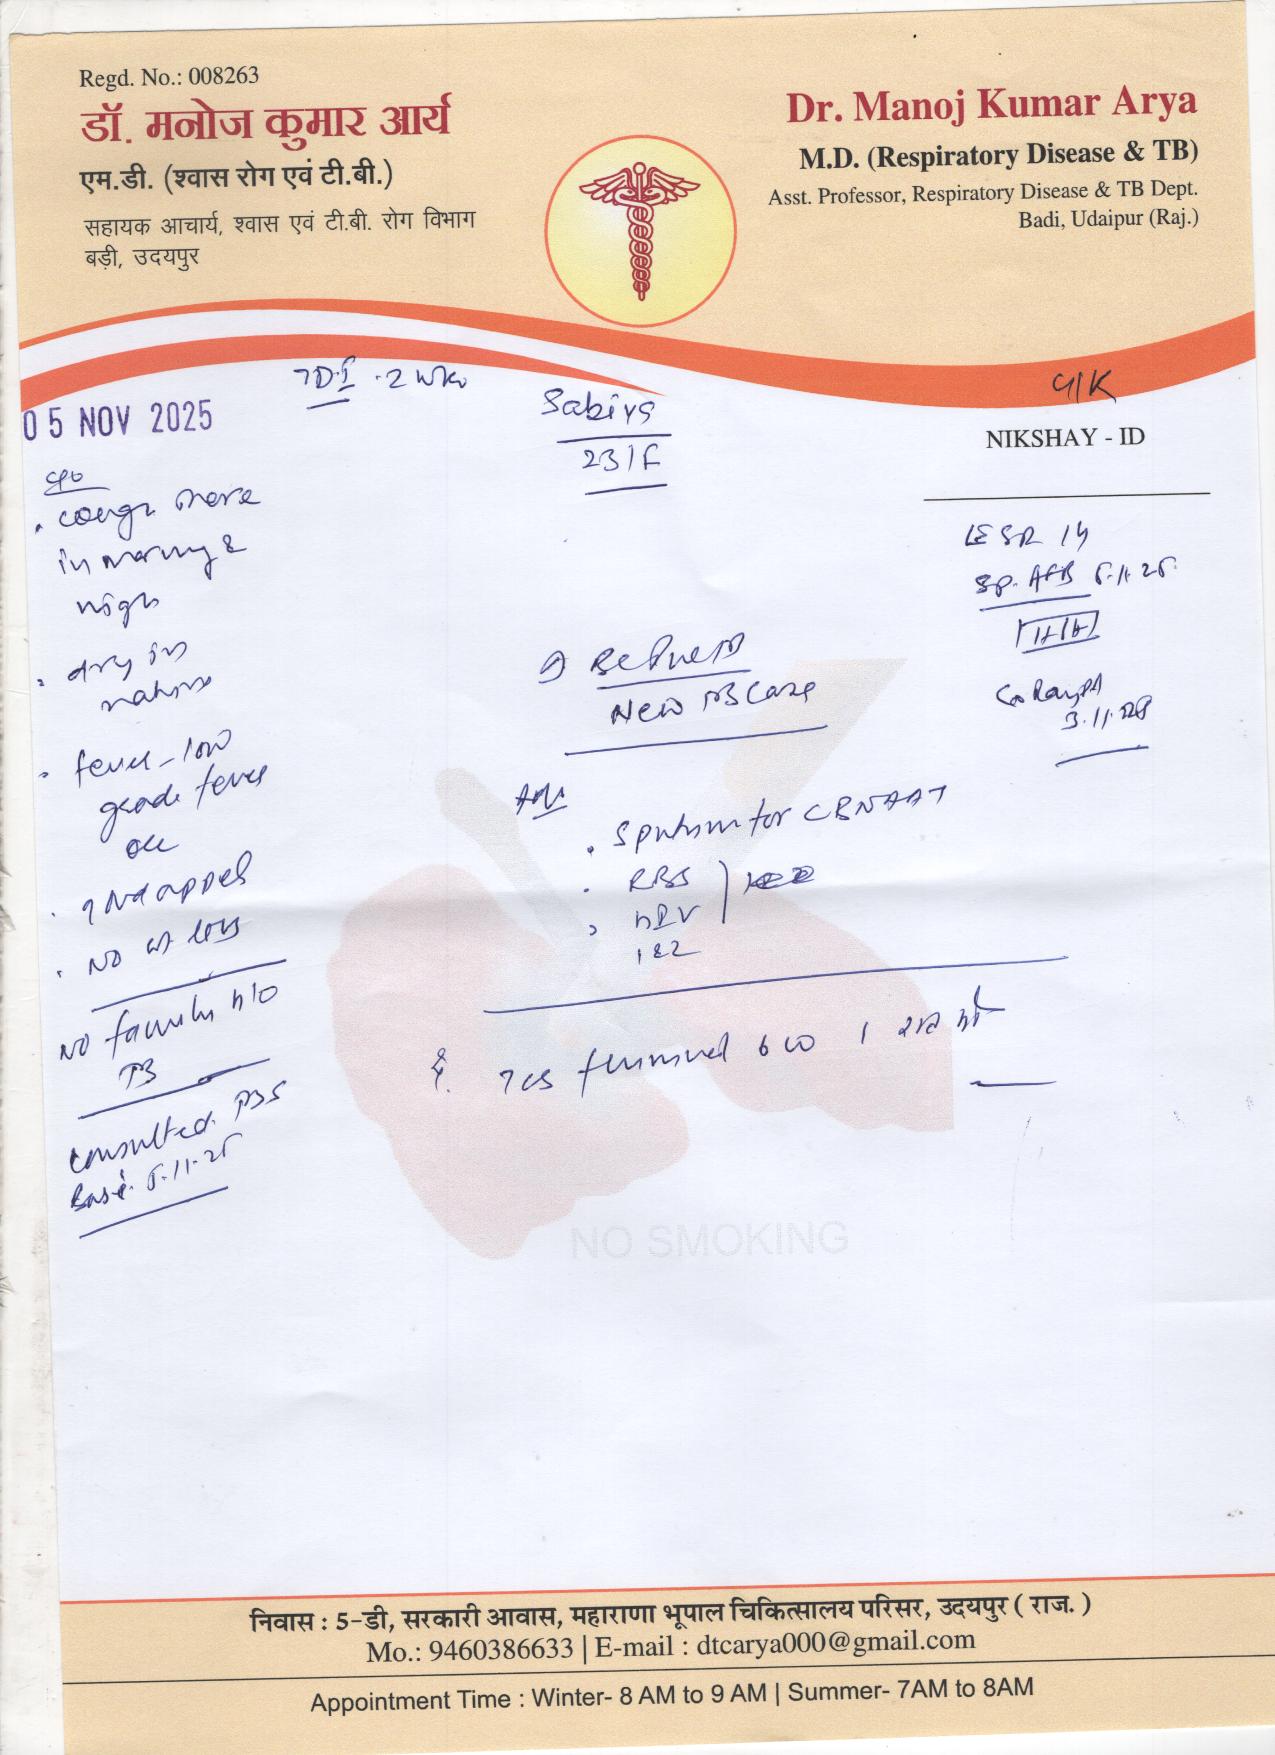 Regd. No.: 008263
डॉ. मनोज कुमार आर्य
एम.डी. (श्वास रोग एवं टी.बी.)
सहायक आचार्य, श्वास एवं टी.बी. रोग विभाग
बड़ी, उदयपुर
Dr. Manoj Kumar Arya
M.D. (Respiratory Disease & TB)
Asst. Professor, Respiratory Disease & TB Dept.
Badi, Udaipur (Raj.)
05 NOV 2025
2 wks
Sabiya
23/F
NIKSHAY - ID
c/o
. cough more
in morning &
night
. dry in
nature
. fever - low
grade fever
. No wt loss
No family h/o
TB
consulted
5.11.25
ESR 14
Sp. AFB 5.11.25
3.11.25
New TB Case
Adv
. Sputum for CBNAAT
. RBS
. HIV
1 & 2
NO SMOKING
निवास : 5-डी, सरकारी आवास, महाराणा भूपाल चिकित्सालय परिसर, उदयपुर ( राज. )
Mo.: 9460386633 | E-mail : dtcarya000@gmail.com
Appointment Time : Winter- 8 AM to 9 AM | Summer- 7AM to 8AM